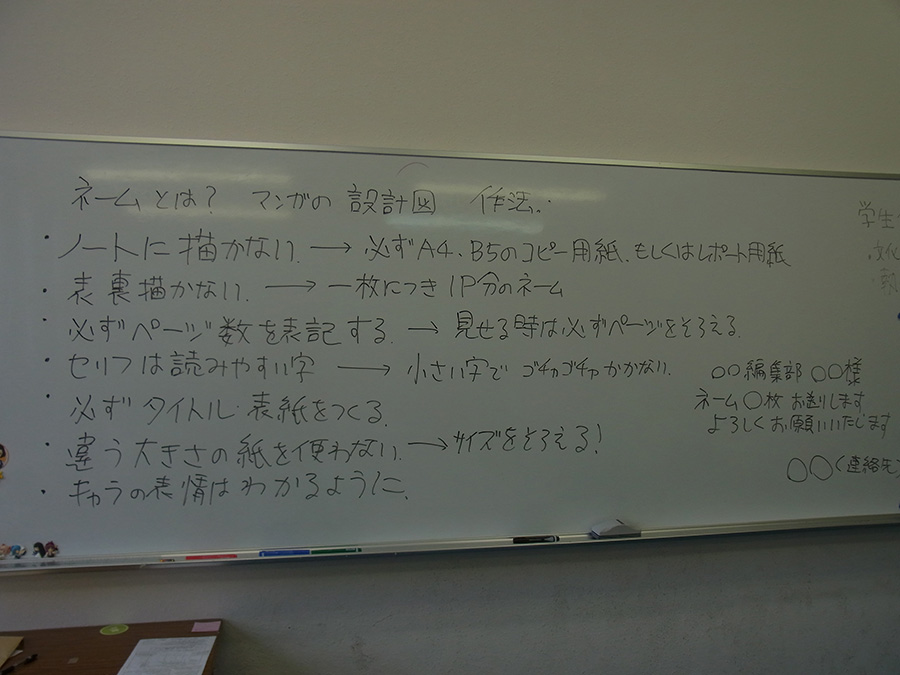 ネームとは? マンガの 設計図 作法.:
・ノートに描かない. → 必ずA4、B5のコピー用紙、もしくはレポート用紙
・表裏描かない. → 一枚につき1P分のネーム
・必ずページ数を表記する → 見せる時は必ずページをそろえる.
・セリフは読みやすい字 → 小さい字で ゴチャゴチャかかない.
・必ずタイトル・表紙をつくる.
・違う大きさの紙を使わない. → サイズをそろえる!
・キャラの表情はわかるように.
学生
文化
○○編集部 ○○様
ネーム○枚 お送りします
よろしくお願いいたします
○○(連絡先